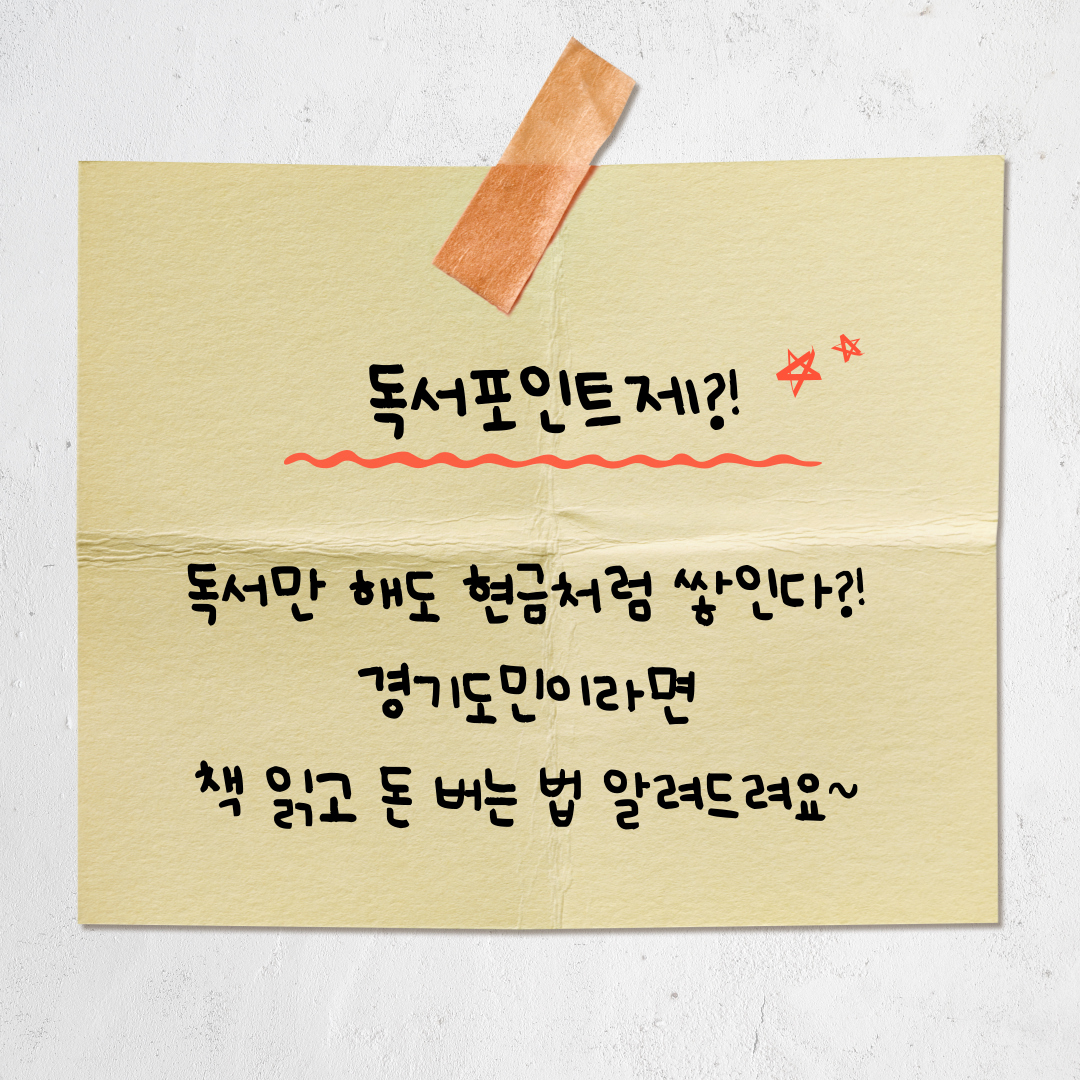 독서포인트제?!
독서만 해도 현금처럼 쌓인다?!
경기도민이라면
책 읽고 돈 버는 법 알려드려요~